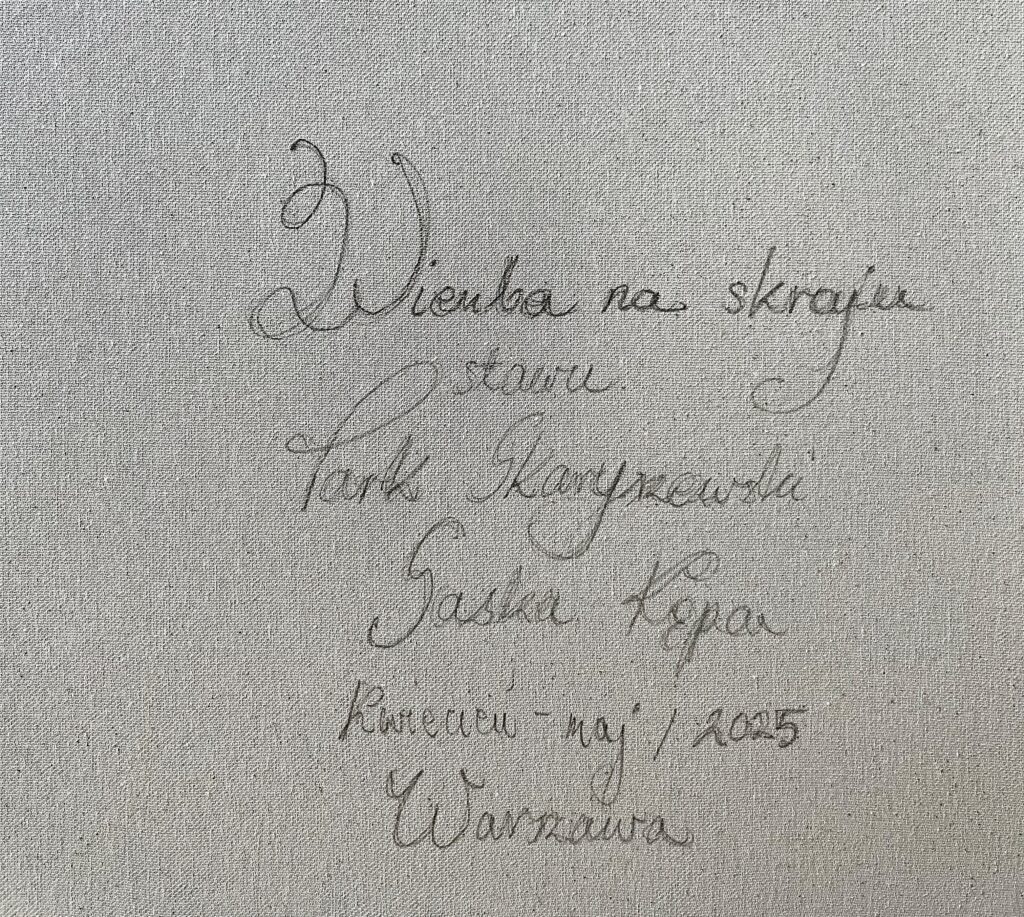 Wierzba na skraju
stawu.
Park Skaryszewski
Saska Kępa
Kwiecień - maj / 2025
Warszawa